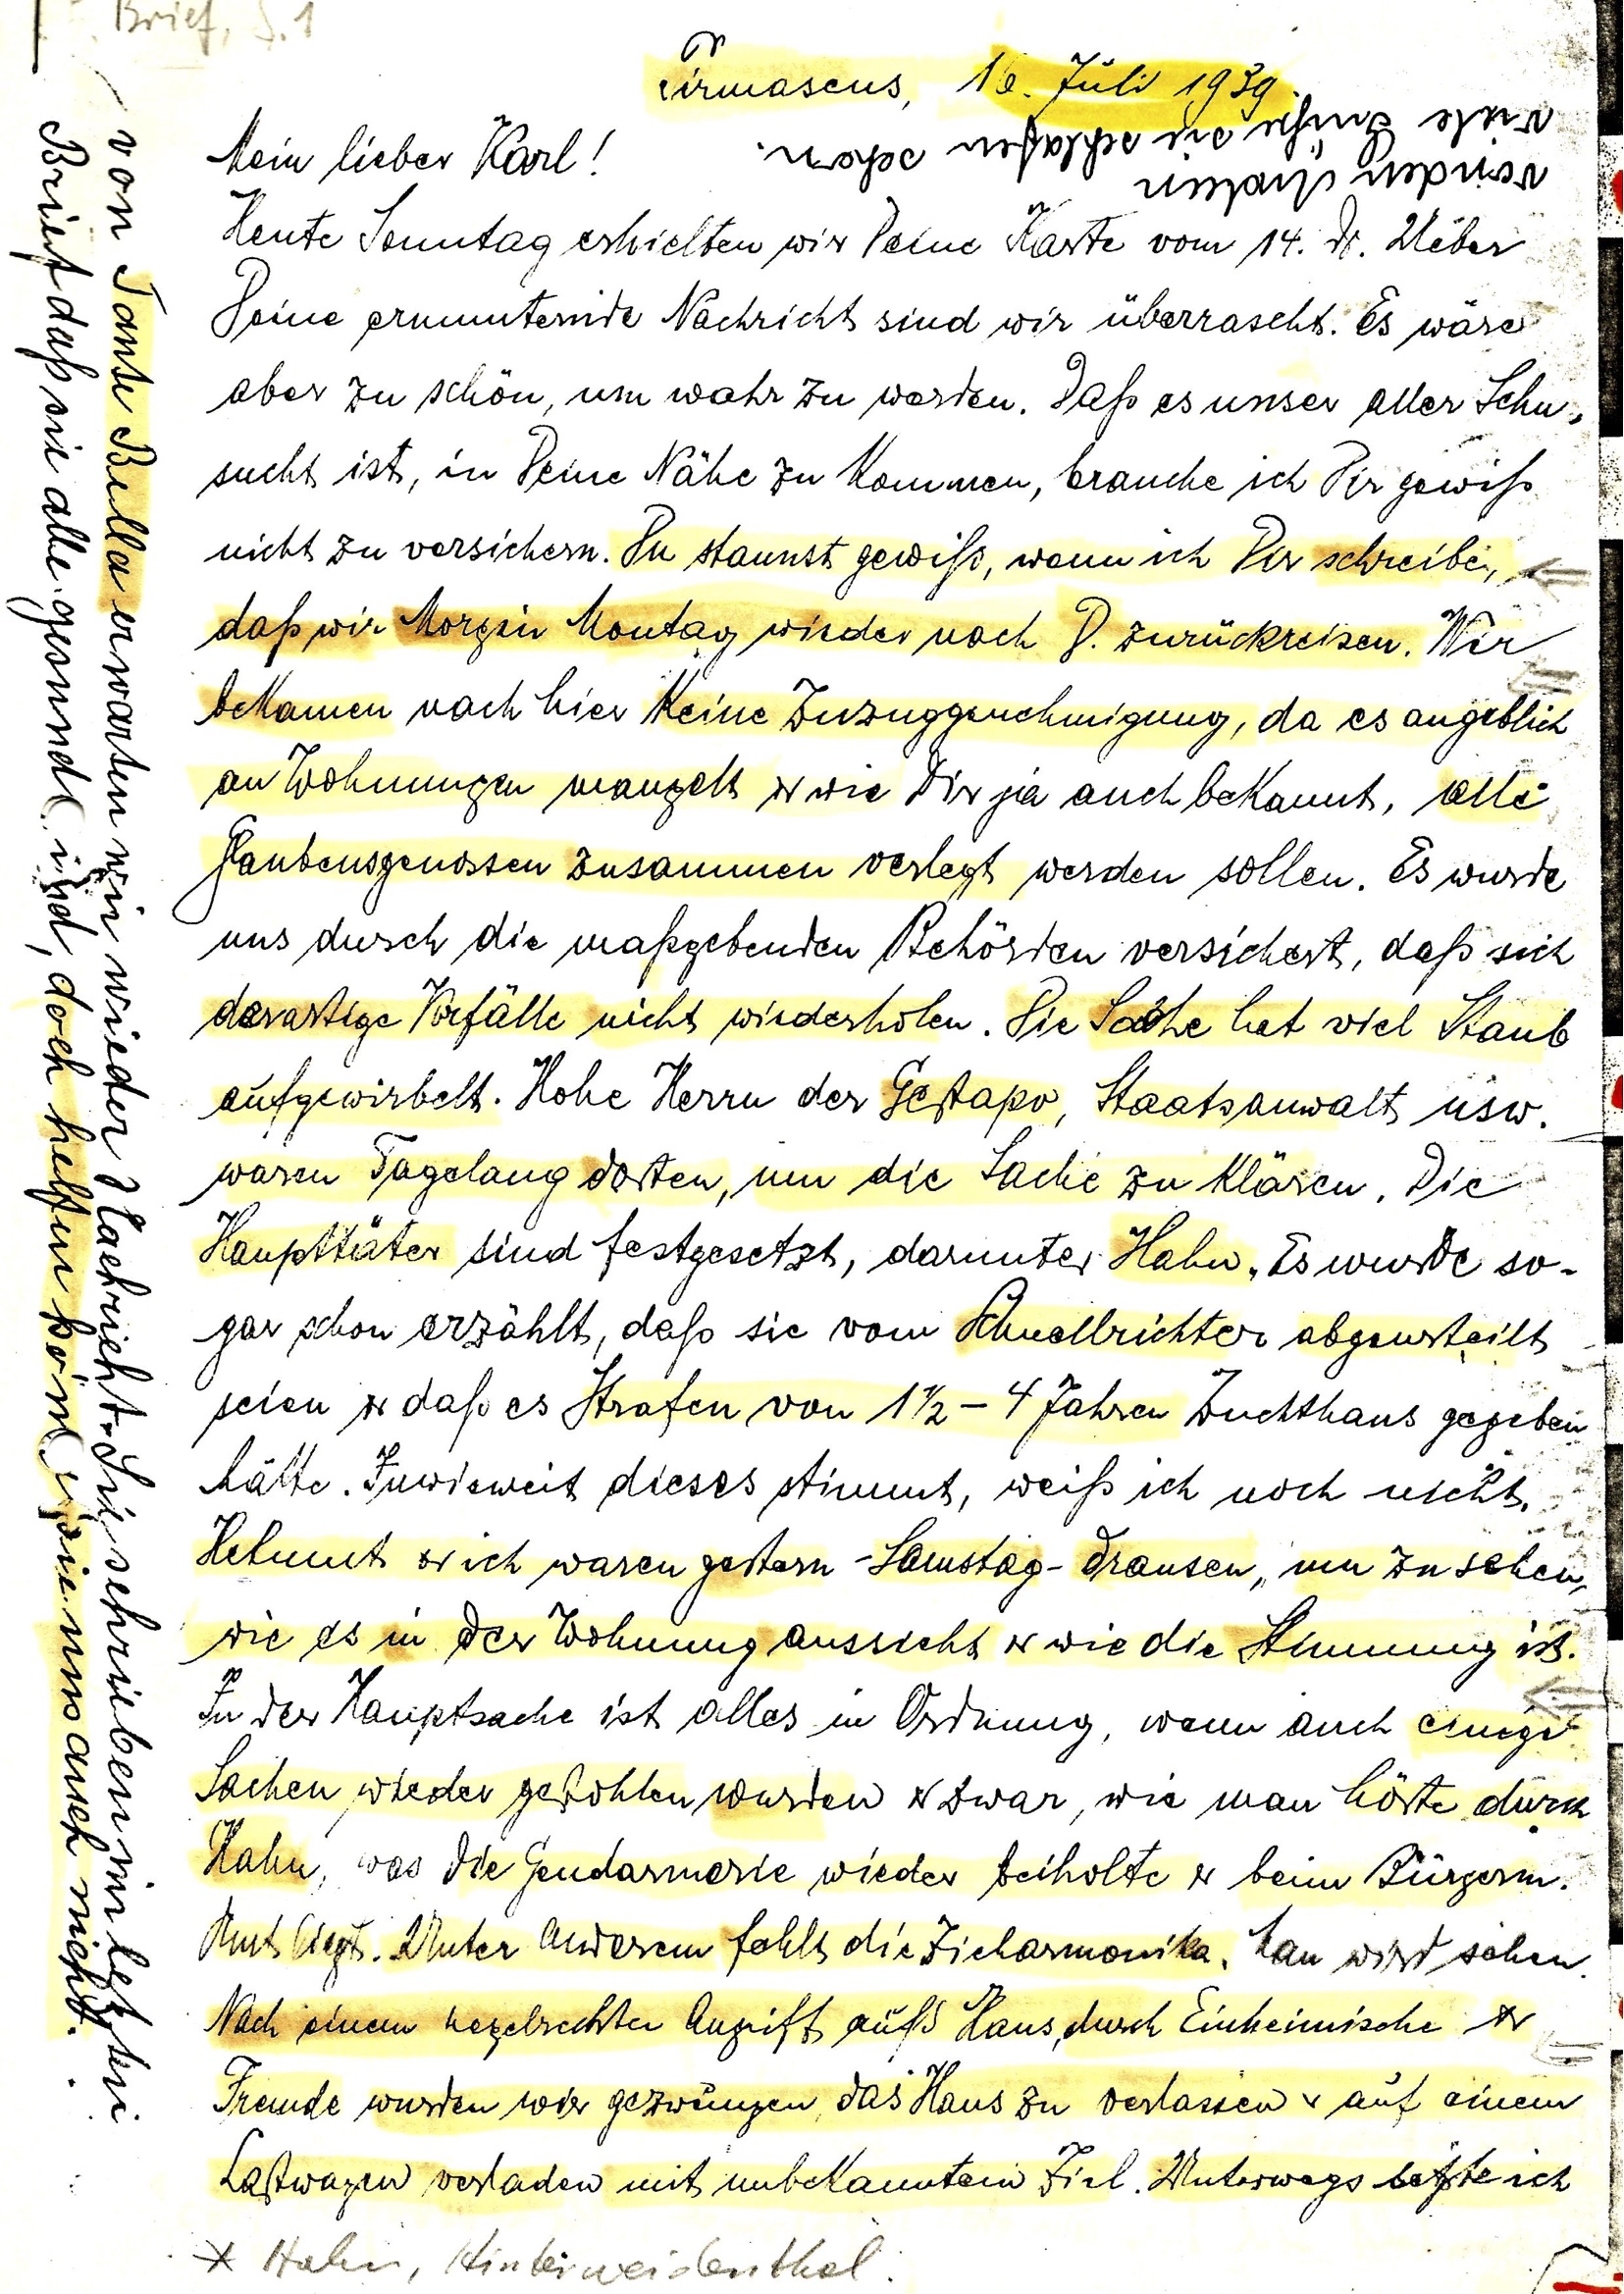 Brief, S. 1
Pirmasens, 16. Juli 1939.
Mein lieber Karl!
Heute Sonntag erhielten wir Deine Karte vom 14. ds. Ueber
Deine ermunternde Nachricht sind wir überrascht. Es wäre
aber zu schön, um wahr zu werden. Daß es unser aller Sehn-
sucht ist, in Deine Nähe zu kommen, brauche ich Dir gewiß
nicht zu versichern. Du staunst gewiß, wenn ich Dir schreibe,
daß wir Morgen Montag wieder nach D. zurückreisen. Wir
bekamen nach hier keine Zuzuggenehmigung, da es angeblich
an Wohnungen mangelt & wie Dir ja auch bekannt, alle
Glaubensgenossen zusammen verlegt werden sollen. Es wurde
uns durch die maßgebenden Behörden versichert, daß sich
derartige Vorfälle nicht wiederholen. Die Sache hat viel Staub
aufgewirbelt. Hohe Herrn der Gestapo, Staatsanwalt usw.
waren Tagelang dorten, um die Sache zu klären. Die
Haupttäter sind festgesetzt, darunter Hahn. Es wurde so-
gar schon erzählt, daß sie vom Schnellrichter abgeurteilt
seien & daß es Strafen von 1½ - 4 Jahren Zuchthaus gegeben
hätte. Inwieweit dieses stimmt, weiß ich noch nicht.
Helmut & ich waren gestern - Samstag - drausen, um zu sehen,
wie es in der Wohnung aussieht & wie die Stimmung ist.
In der Hauptsache ist alles in Ordnung, wenn auch einige
Sachen wieder gestohlen wurden & zwar, wie man hörte durch
Hahn, was die Gendarmerie wieder beiholte & beim Bürgerm.
Amt liegt. Unter Anderem fehlt die Ziehharmonika. Man wird sehen.
Nach einem regelrechten Angriff auf's Haus, durch Einheimische &
Fremde wurden wir gezwungen, das Haus zu verlassen & auf einem
Lastwagen verladen mit unbekanntem Ziel. Unterwegs setzte ich
* Hahn, Hinterweidenthal.
von Tante Bella erwarten wir wieder Nachricht. Sie schrieben im letzten
Brief daß sie alle gesund sind, doch helfen können sie uns auch nicht.
viele Grüße sie schlafen schon.